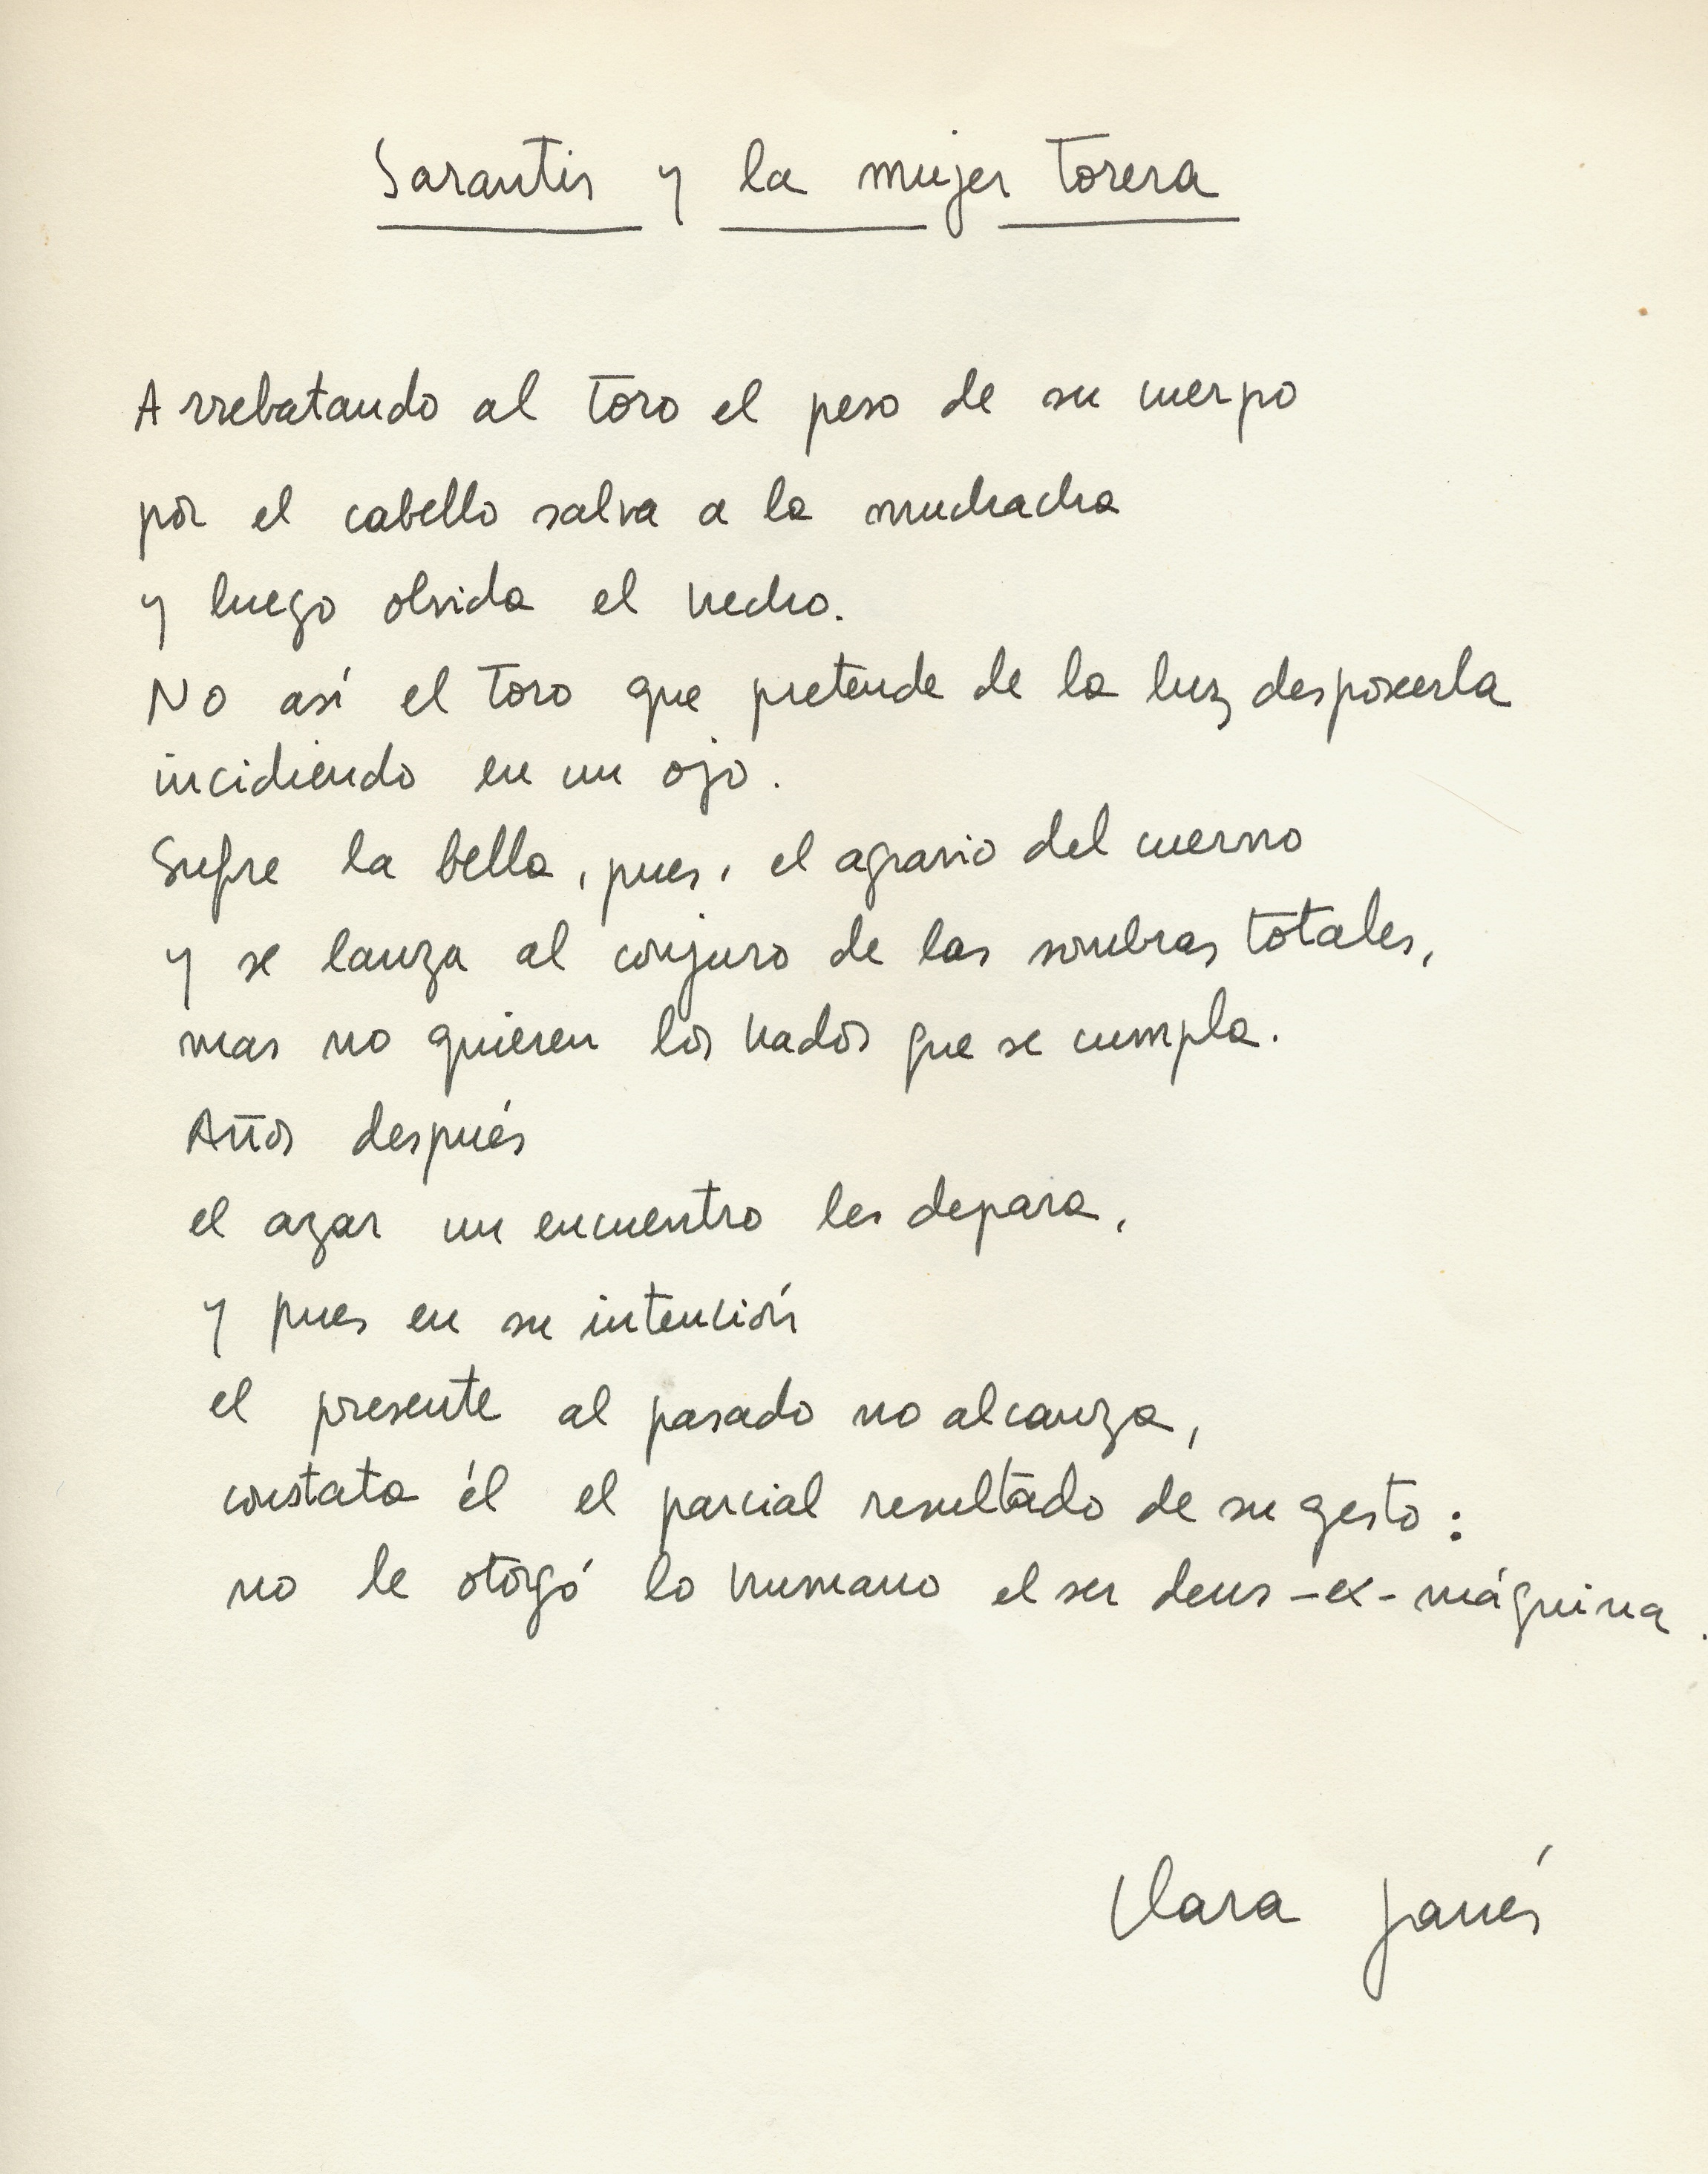 Sarantis y la mujer torera
Arrebatando al toro el peso de su cuerpo
por el cabello salva a la muchacha
y luego olvida el hecho.
No así el toro que pretende de la luz desposeerla
incidiendo en un ojo.
Sufre la bella, pues, el agravio del cuerno
y se lanza al conjuro de las sombras totales,
mas no quieren los hados que se cumpla.
Años después
el azar un encuentro les depara,
y pues en su intención
el presente al pasado no alcanza,
constata él el parcial resultado de su gesto:
no le otorgó lo humano el ser deus-ex-máquina.
Clara Janés